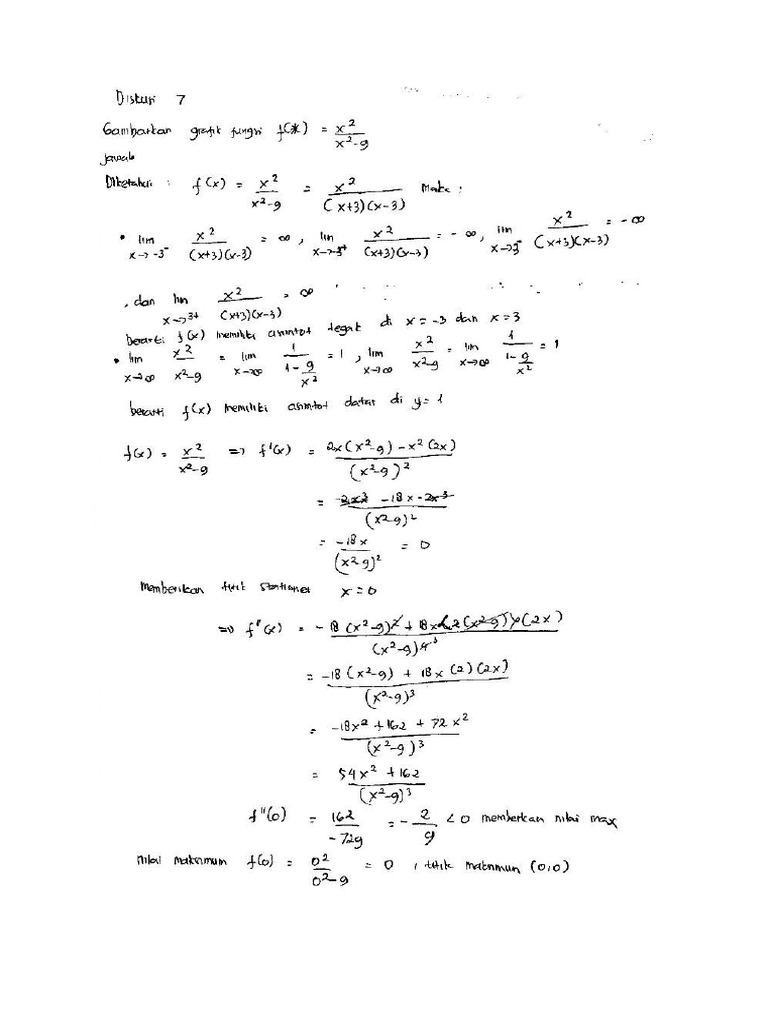 Diskusi 7
Gambarkan grafik fungsi f(x) = x²/(x²-9)
Jawab
Diketahui : f(x) = x²/(x²-9) = x²/((x+3)(x-3)) Maka :
• lim x→-3⁻ x²/((x+3)(x-3)) = ∞ , lim x→-3⁺ x²/((x+3)(x-3)) = -∞ , lim x→3⁻ x²/((x+3)(x-3)) = -∞
, dan lim x→3+ x²/((x+3)(x-3)) = ∞
berarti f(x) memiliki asimtot tegak di x = -3 dan x = 3
• lim x→∞ x²/(x²-9) = lim x→∞ 1/(1 - 9/x²) = 1 , lim x→∞ x²/(x²-9) = lim x→∞ 1/(1 - 9/x²) = 1
berarti f(x) memiliki asimtot datar di y = 1
f(x) = x²/(x²-9) => f'(x) = (2x(x²-9) - x²(2x))/(x²-9)²
= (2x³ - 18x - 2x³)/(x²-9)²
= -18x/(x²-9)² = 0
memberikan titik stationer x = 0
=> f"(x) = (-18(x²-9)² + 18x·2(x²-9)(2x))/(x²-9)⁴ ³
= (-18(x²-9) + 18x(2)(2x))/(x²-9)³
= (-18x² + 162 + 72x²)/(x²-9)³
= (54x² + 162)/(x²-9)³
f"(0) = 162/-729 = -2/9 < 0 memberkan nilai max
nilai maksimum f(0) = 0²/(0²-9) = 0 , titik maksimun (0,0)